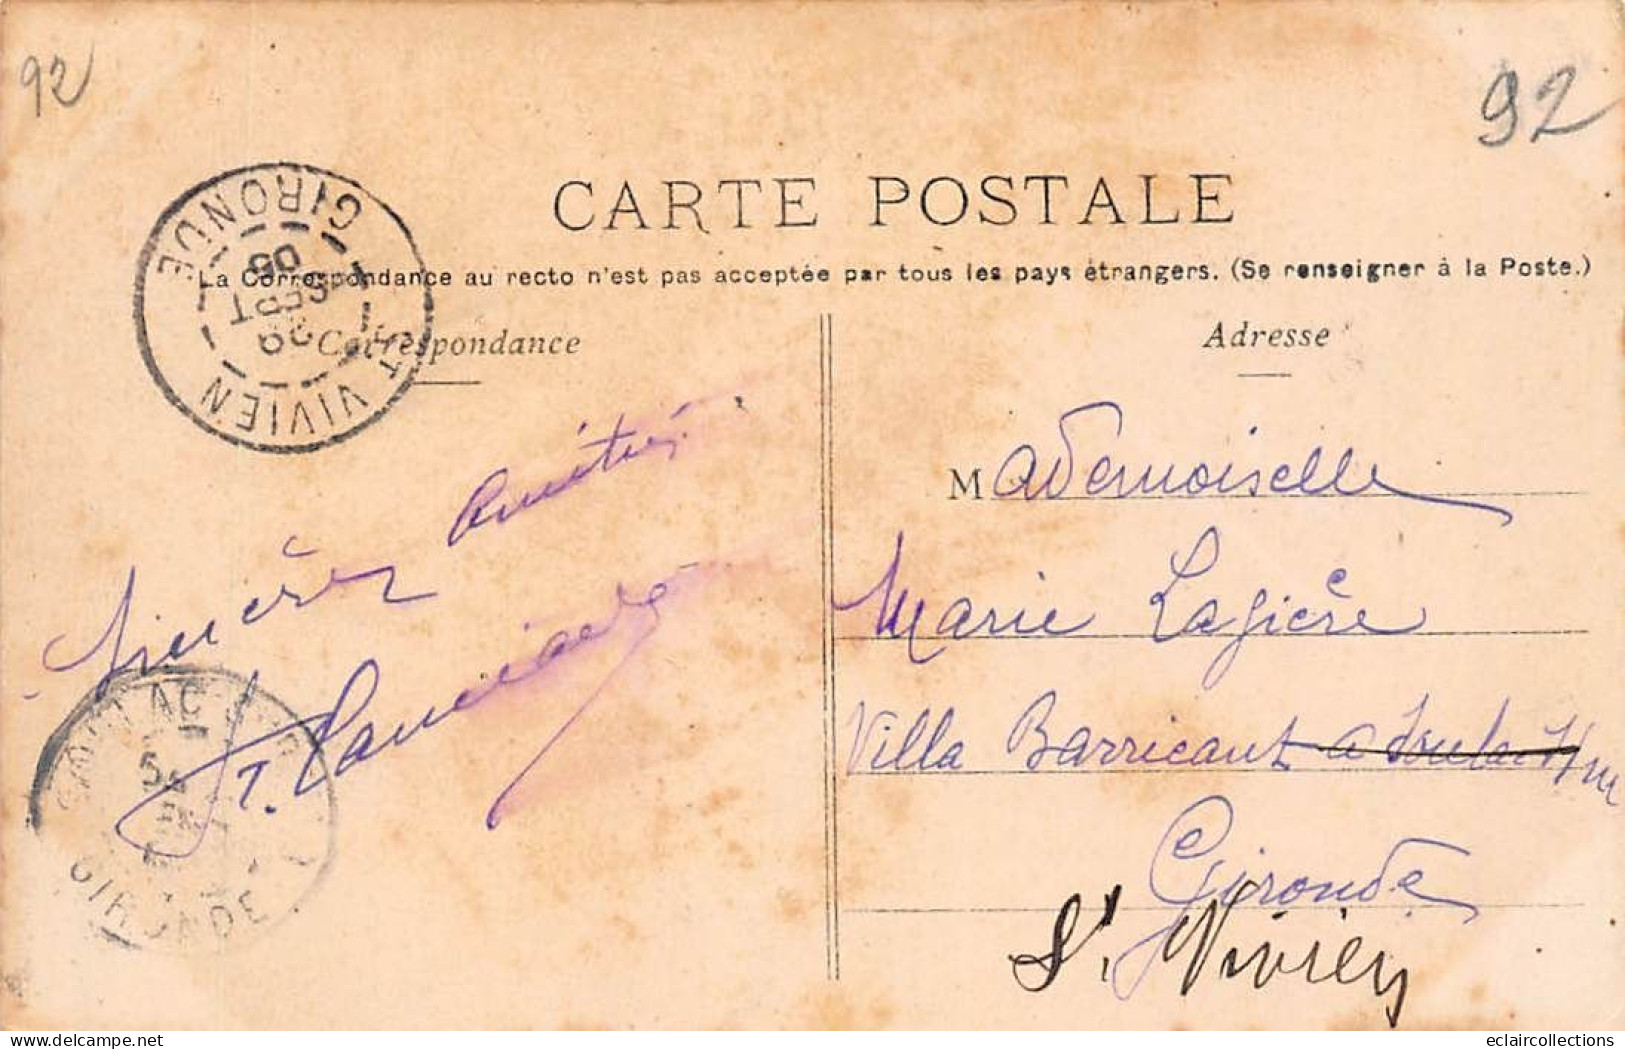 92
92
CARTE POSTALE
La Correspondance au recto n'est pas acceptée par tous les pays étrangers. (Se renseigner à la Poste.)
Correspondance
Adresse
ST VIVIEN
GIRONDE
29
SEPT
05
Sincères Amitiés
Mademoiselle
Marie Lagière
Villa Barricaut a Soulac s/m
Gironde
St Vivien
GIRONDE
eclaircollections